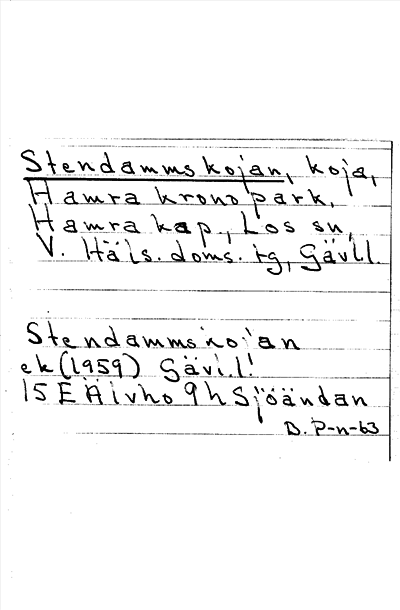 Stendammskojan, koja,
Hamra kronopark,
Hamra kap., Los sn,
V. Häls. doms. tg, Gävll.
Stendammskojan
ek (1959) Gävl.l.
15 E Älvho 9h Sjöändan
D. P-n-63